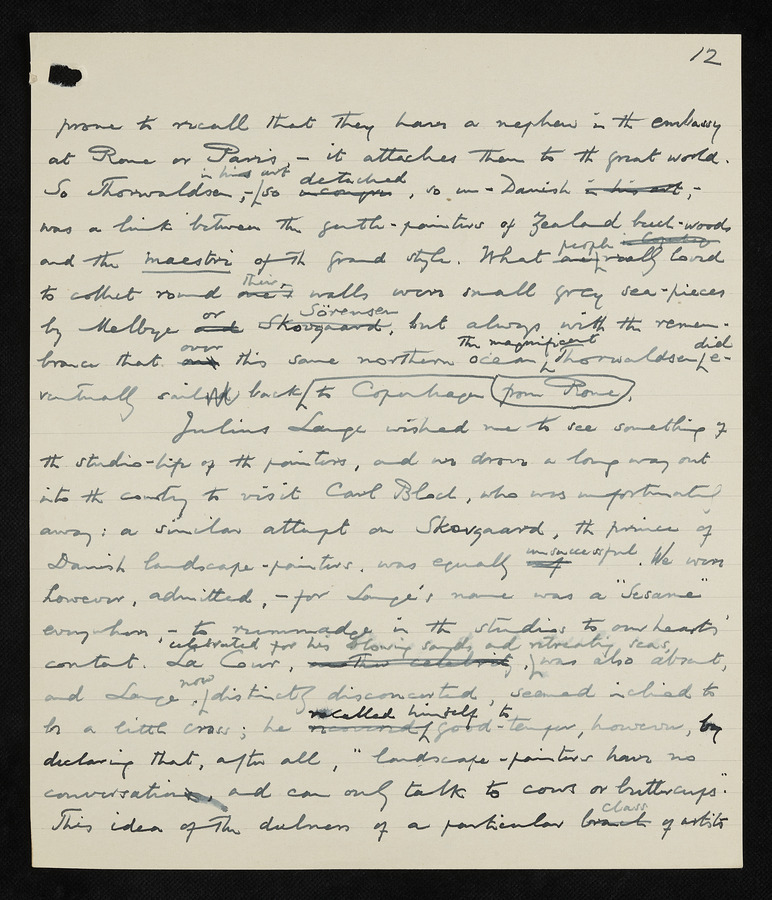 12
prone to recall that they have a nephew in th embassy
at Rome or Paris, – it attaches them to th great world.
in his art detached
So Thorwaldsen, – so incongru , so un-Danish in his art, –
was a link between the gentle-painters of Zealand beech-woods
people
and the maestri of th grand style. What really loved
their
to collect round walls were small grey sea-pieces
or Sörensen
by Melbye and Skovgaard, but always with the remem-
over the magnificent did
brance that this same northern ocean Thorwaldsen e-
ventually sail back to Copenhagen from Rome.
Julius Lange wished me to see something of
th studio-life of th painters, and we drove a long way out
into th country to visit Carl Bloch, who was unfortunately
away: a similar attempt on Skovgaard, th prince of
unsuccessful
Danish landscape-painters, was equally . We were
however, admitted, – for Lange's name was a "Sesame"
everywhere, – to rummadge in th studios to our hearts'
celebrated for his blowing sands and retreating seas,
content. La Cour, that celebrity, was also absent,
now
and Lange, distinctly disconcerted, seemed inclined to
recalled himself to
be a little cross; he recovered good-temper, however, by
declaring that, after all, "landscape-painters have no
conversation, and can only talk to cows or buttercups".
class
This idea of th dulness of a particular branch of artists